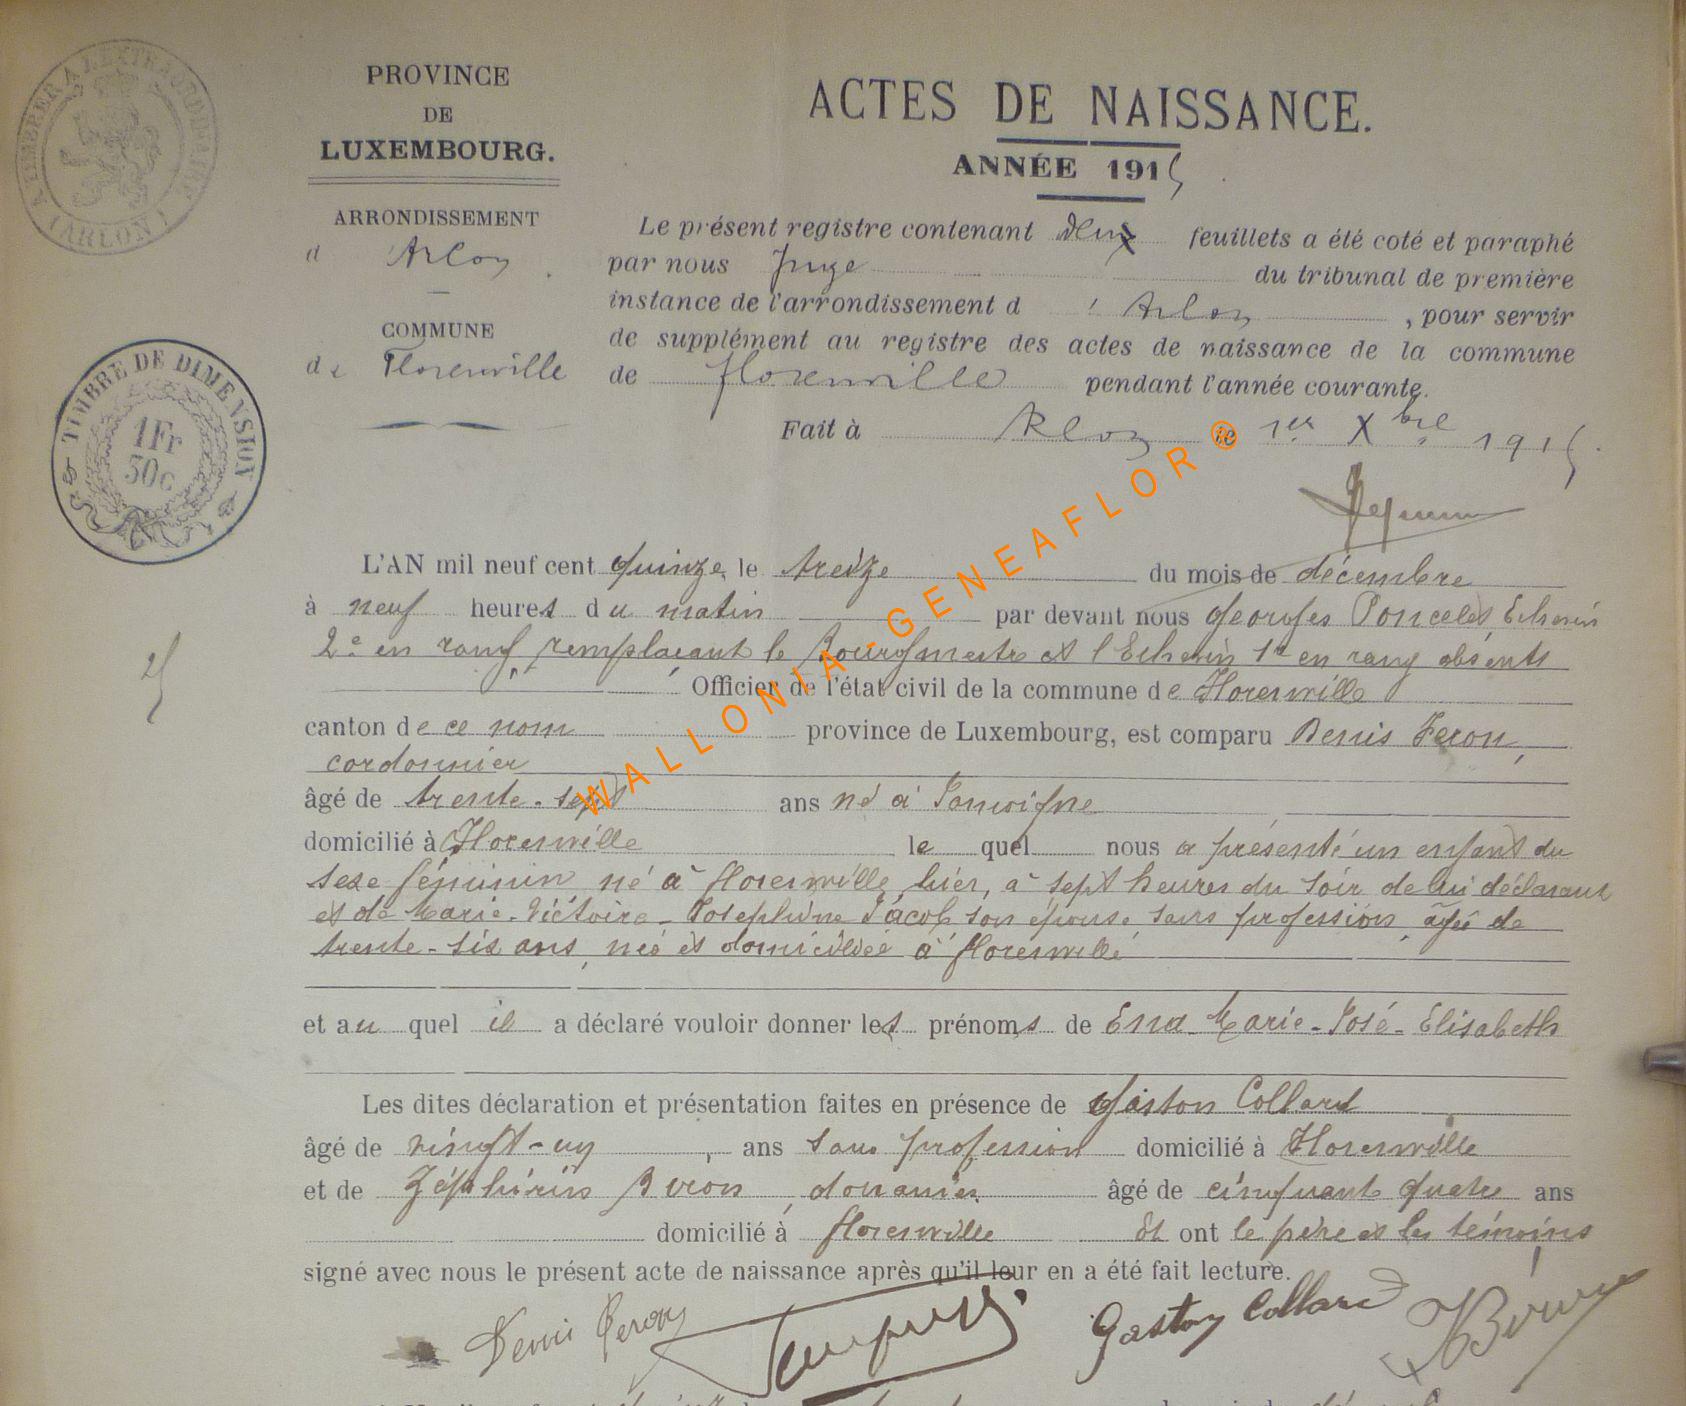 A TIMBRER A L'EXTRAORDINAIRE
(ARLON)
PROVINCE
DE
LUXEMBOURG.
ARRONDISSEMENT
d'Arlon.
COMMUNE
de Florenville
TIMBRE DE DIMENSION
1 Fr
50 c
ACTES DE NAISSANCE.
ANNÉE 1915.
Le présent registre contenant deux feuillets a été coté et paraphé
par nous Juge du tribunal de première
instance de l'arrondissement d'Arlon, pour servir
de supplément au registre des actes de naissance de la commune
de florenville pendant l'année courante.
Fait à Arlon le 1er Xbre 1915.
WALLONIA-GENEAFLOR ®
L'AN mil neuf cent quinze, le treize du mois de décembre
à neuf heures du matin par devant nous Georges Poncelet, Echevin
2e en rang, remplaçant le Bourgmestre et l'Echevin 1er en rang absents
Officier de l'état civil de la commune de Florenville
canton de ce nom province de Luxembourg, est comparu Denis Feron,
cordonnier
âgé de trente-sept ans né à Jamoigne
domicilié à Florenville lequel nous a présenté un enfant du
sexe féminin né à florenville, hier, à sept heures du soir de lui déclarant
et de Marie-Victoire-Joséphine Jacob, son épouse, sans profession, âgée de
trente-six ans, née et domiciliée à florenville
et auquel il a déclaré vouloir donner les prénoms de Ena-Marie-José-Elisabeth
Les dites déclaration et présentation faites en présence de Gaston Collard
âgé de vingt-un, ans sans profession domicilié à Florenville
et de Zéphirin Biron, douanier âgé de cinquante quatre ans
domicilié à florenville Et ont le père et les témoins
signé avec nous le présent acte de naissance après qu'il leur en a été fait lecture.
Denis Feron
Gaston Collard